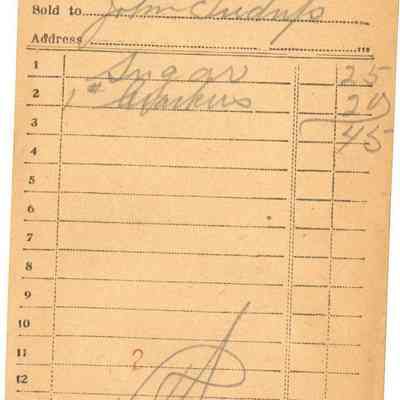 Sold to John
Address
1 Sugar 25
2 1# 20
3 45
4
5
6
7
8
9
10
11 2
12